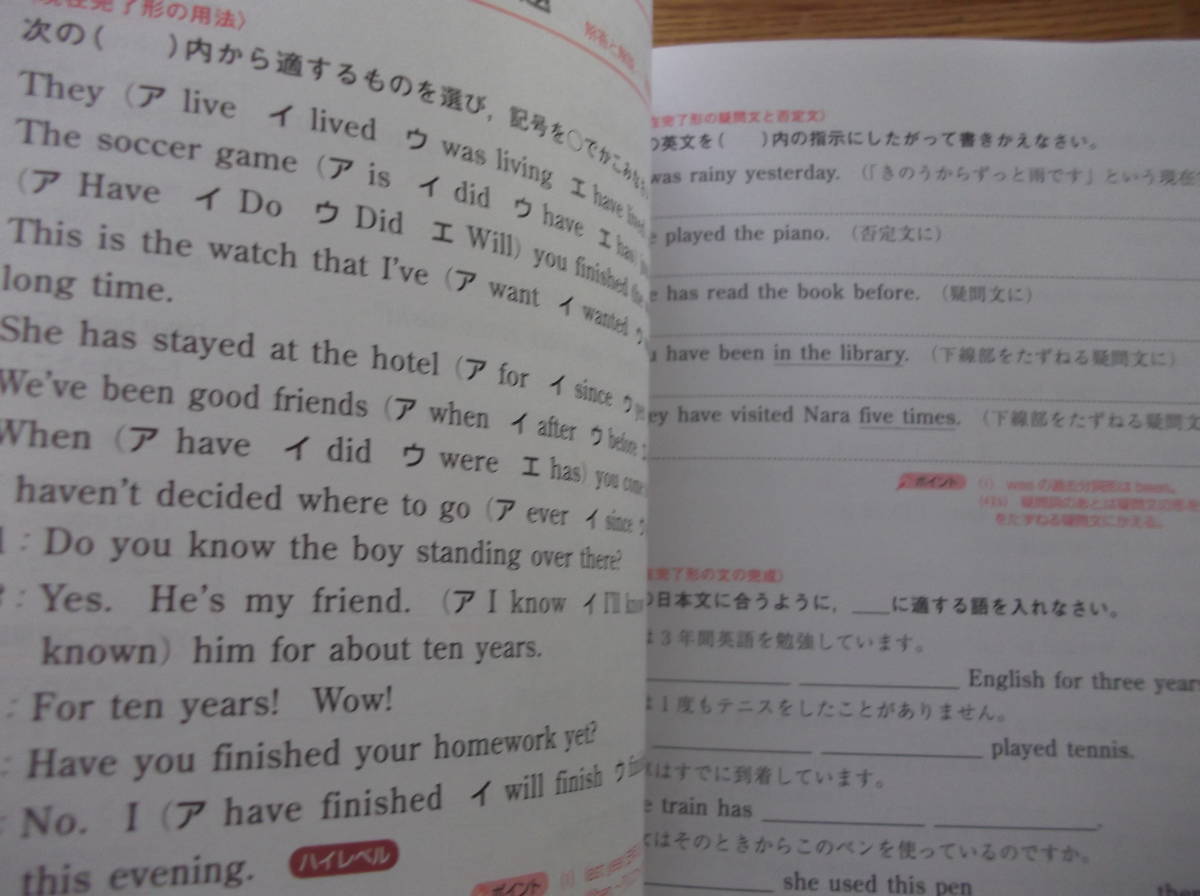 現在完了形の用法〉
次の( )内から適するものを選び，記号を○でかこみなさい
They (ア live イ lived ウ was living エ have lived
The soccer game (ア is イ did ウ have エ has
(ア Have イ Do ウ Did エ Will) you finished the
This is the watch that I've (ア want イ wanted ウ
long time.
She has stayed at the hotel (ア for イ since ウ
We've been good friends (ア when イ after ウ before エ
When (ア have イ did ウ were エ has) you come
haven't decided where to go (ア ever イ since ウ
: Do you know the boy standing over there?
: Yes. He's my friend. (ア I know イ I'll know
known) him for about ten years.
: For ten years! Wow!
: Have you finished your homework yet?
: No. I (ア have finished イ will finish ウ
this evening. ハイレベル
ポイント
在完了形の疑問文と否定文〉
の英文を( )内の指示にしたがって書きかえなさい。
was rainy yesterday. (「きのうからずっと雨です」という現在
played the piano. (否定文に)
has read the book before. (疑問文に)
have been in the library. (下線部をたずねる疑問文に)
ey have visited Nara five times. (下線部をたずねる疑問文
ポイント (1) wasの過去分詞形はbeen。
疑問詞のあとは疑問文の形を
をたずねる疑問文にかえる。
在完了形の文の完成〉
の日本文に合うように，＿に適する語を入れなさい。
は3年間英語を勉強しています。
English for three year
は1度もテニスをしたことがありません。
played tennis.
はすでに到着しています。
e train has
はそのときからこのペンを使っているのですか。
she used this pen